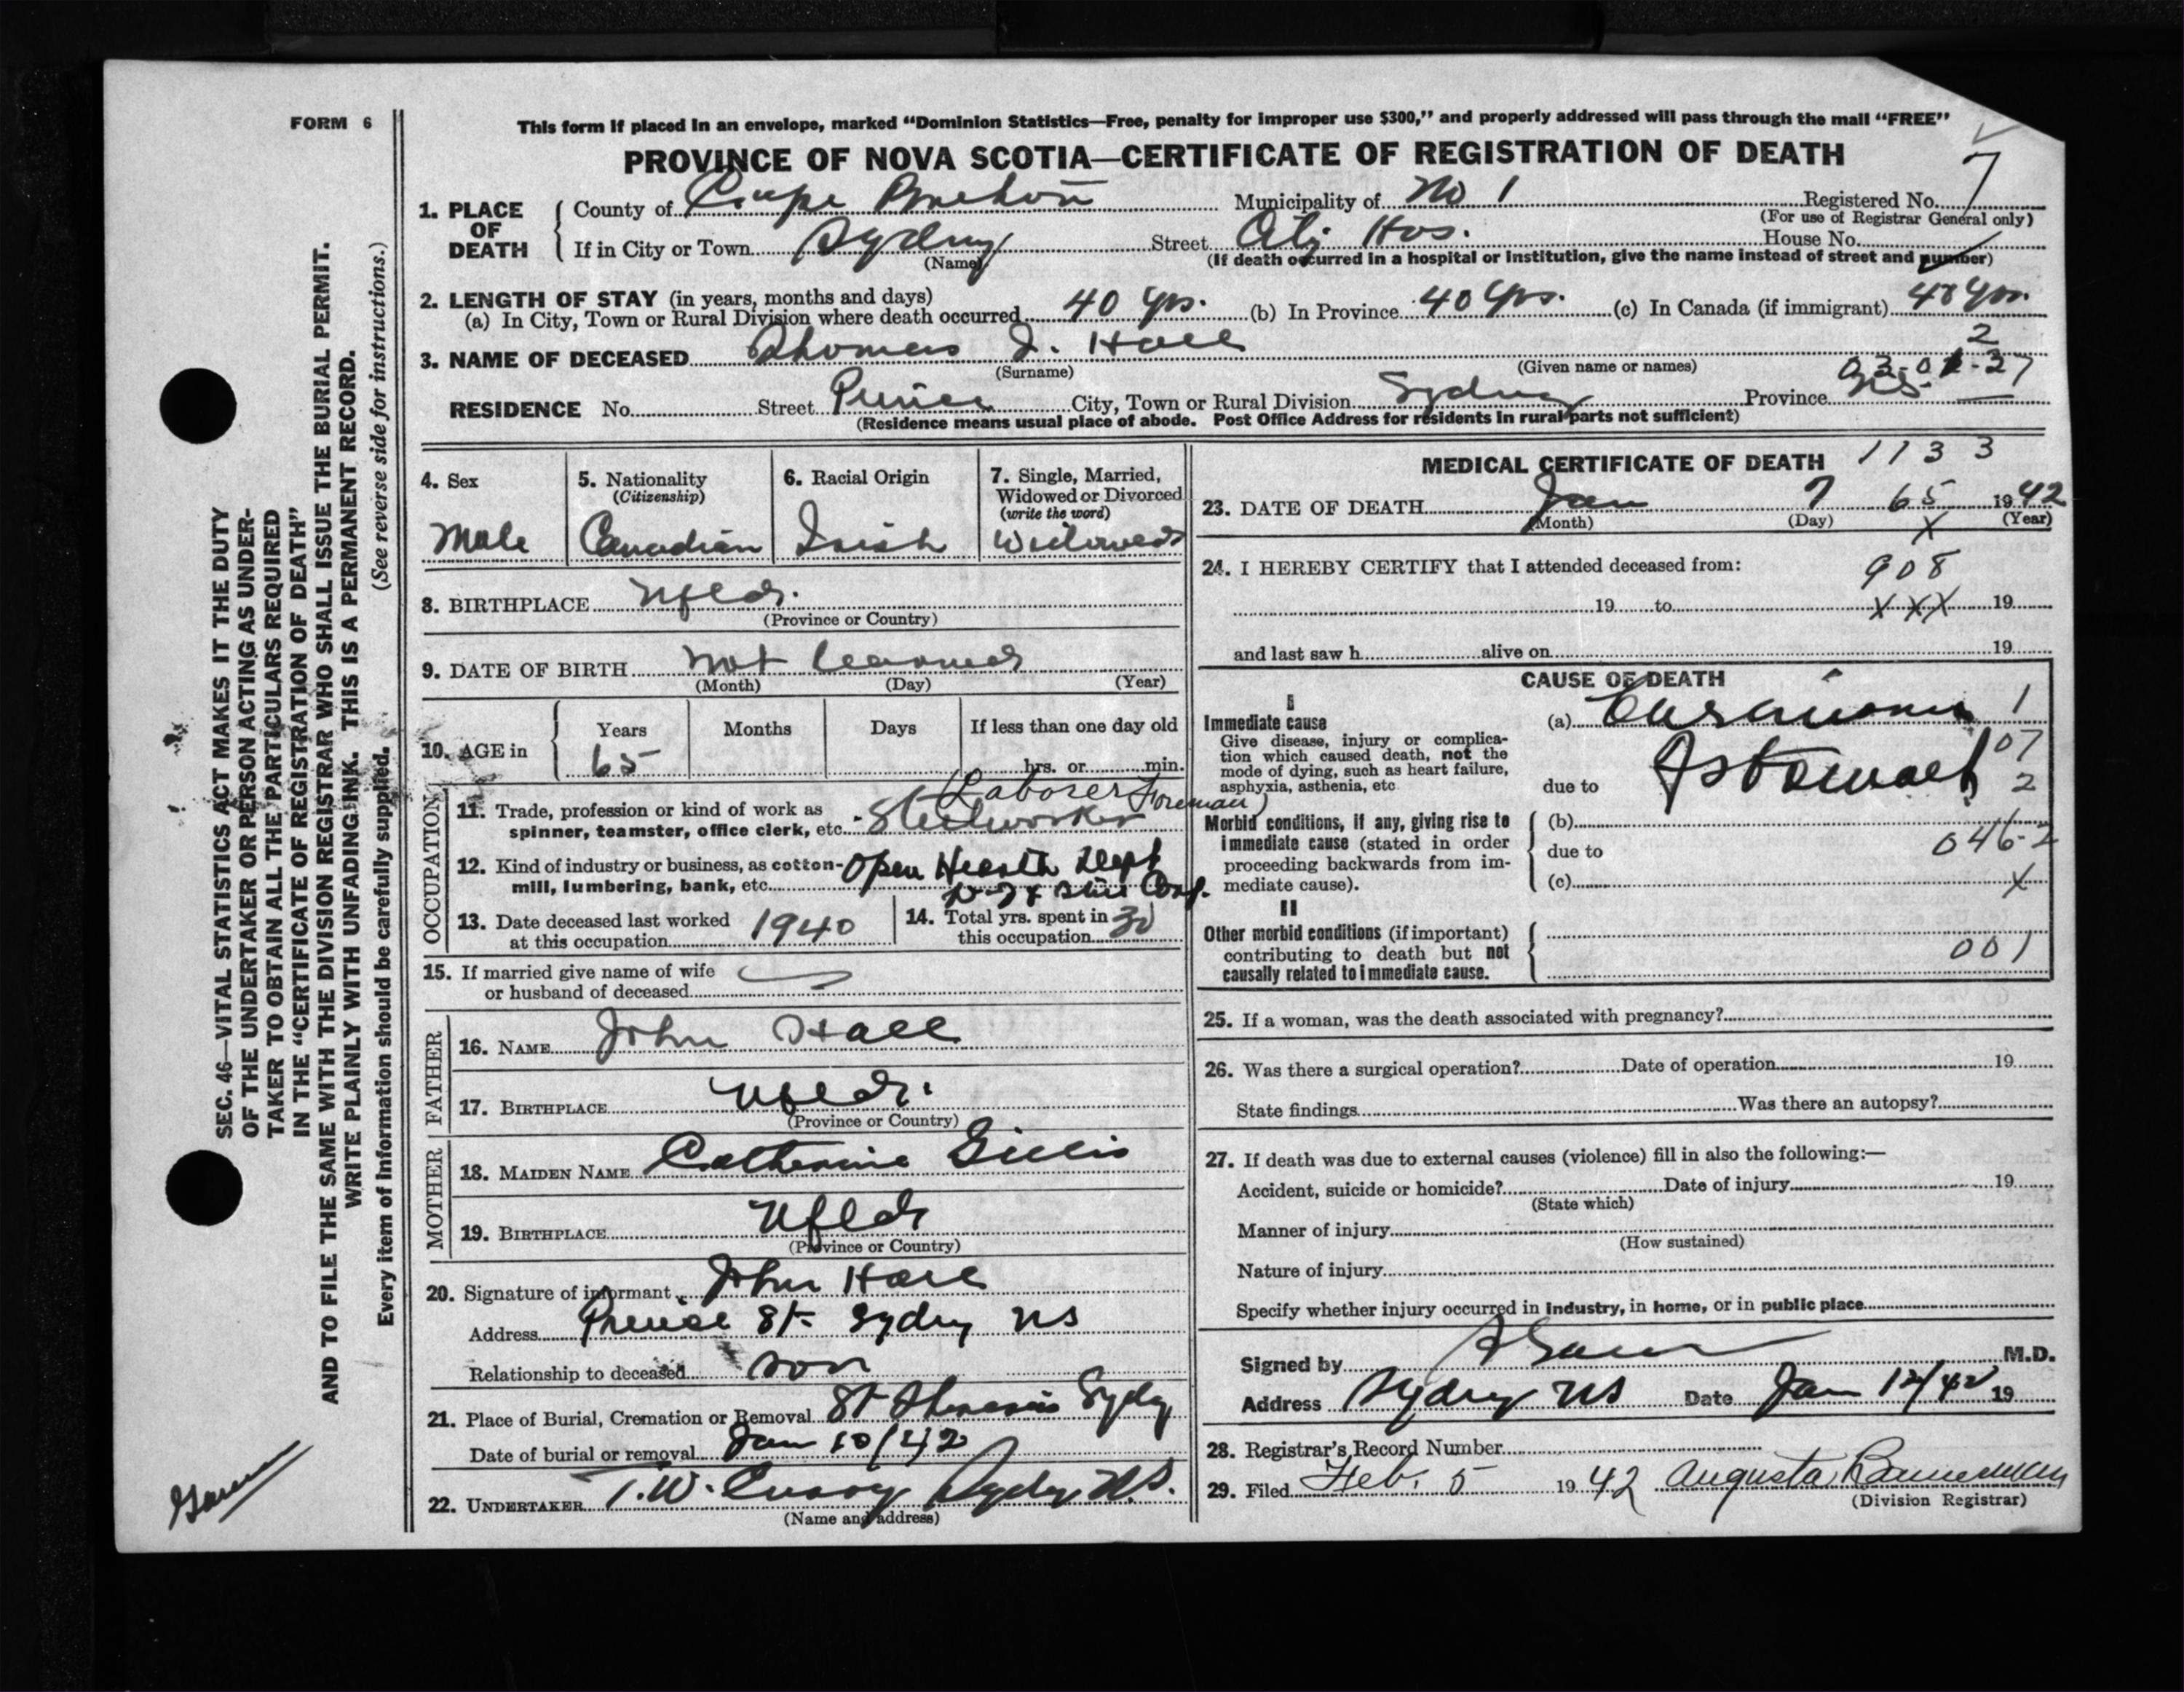 FORM 6
This form if placed in an envelope, marked "Dominion Statistics—Free, penalty for improper use $300," and properly addressed will pass through the mail "FREE"
PROVINCE OF NOVA SCOTIA—CERTIFICATE OF REGISTRATION OF DEATH
7
1. PLACE OF DEATH
County of Cape Breton Municipality of No 1 Registered No.
(For use of Registrar General only)
If in City or Town Sydney Street City Hos. House No.
(Name)
(If death occurred in a hospital or institution, give the name instead of street and number)
2. LENGTH OF STAY (in years, months and days)
(a) In City, Town or Rural Division where death occurred 40 yrs. (b) In Province 40 yrs. (c) In Canada (if immigrant) 40 yrs.
3. NAME OF DECEASED Thomas J. Hall
(Surname) (Given name or names)
2
03-01-27
RESIDENCE No. Street City, Town or Rural Division Sydney Province NS
(Residence means usual place of abode. Post Office Address for residents in rural parts not sufficient)
4. Sex
Male
5. Nationality
(Citizenship)
Canadian
6. Racial Origin
Irish
7. Single, Married,
Widowed or Divorced
(write the word)
Widowed
8. BIRTHPLACE Nfld.
(Province or Country)
9. DATE OF BIRTH Not learned
(Month) (Day) (Year)
10. AGE in
Years Months Days If less than one day old
65 hrs. or min.
OCCUPATION
(Laborer Foreman)
11. Trade, profession or kind of work as
spinner, teamster, office clerk, etc. Steelworker
12. Kind of industry or business, as cotton-
mill, lumbering, bank, etc. Open Hearth Dept
Corp.
13. Date deceased last worked
at this occupation 1940
14. Total yrs. spent in
this occupation 30
15. If married give name of wife
or husband of deceased
FATHER
16. NAME John Hall
17. BIRTHPLACE Nfld.
(Province or Country)
MOTHER
18. MAIDEN NAME Catherine Gillis
19. BIRTHPLACE Nfld
(Province or Country)
20. Signature of informant John Hall
Address St Sydney NS
Relationship to deceased son
21. Place of Burial, Cremation or Removal St Sydney
Date of burial or removal Jan 10/42
22. UNDERTAKER T. W. Curry Sydney N.S.
(Name and address)
MEDICAL CERTIFICATE OF DEATH 1133
23. DATE OF DEATH Jan 7 65 1942
(Month) (Day) X (Year)
24. I HEREBY CERTIFY that I attended deceased from:
908
19 to XXX 19
and last saw h alive on 19
CAUSE OF DEATH
I
Immediate cause
Give disease, injury or complica-
tion which caused death, not the
mode of dying, such as heart failure,
asphyxia, asthenia, etc
(a) Carcinoma 1
07
due to of stomach 2
Morbid conditions, if any, giving rise to
immediate cause (stated in order
proceeding backwards from im-
mediate cause).
(b)
due to 046-2
(c) X
II
Other morbid conditions (if important)
contributing to death but not
causally related to immediate cause.
001
25. If a woman, was the death associated with pregnancy?
26. Was there a surgical operation? Date of operation 19
State findings Was there an autopsy?
27. If death was due to external causes (violence) fill in also the following:—
Accident, suicide or homicide? Date of injury 19
(State which)
Manner of injury
(How sustained)
Nature of injury
Specify whether injury occurred in industry, in home, or in public place
Signed by M.D.
Address Sydney NS Date Jan 12/42 19
28. Registrar's Record Number
29. Filed Feb. 5 1942 Augusta
(Division Registrar)
SEC. 46—VITAL STATISTICS ACT MAKES IT THE DUTY
OF THE UNDERTAKER OR PERSON ACTING AS UNDER-
TAKER TO OBTAIN ALL THE PARTICULARS REQUIRED
IN THE "CERTIFICATE OF REGISTRATION OF DEATH"
AND TO FILE THE SAME WITH THE DIVISION REGISTRAR WHO SHALL ISSUE THE BURIAL PERMIT.
WRITE PLAINLY WITH UNFADING INK. THIS IS A PERMANENT RECORD.
Every item of information should be carefully supplied. (See reverse side for instructions.)